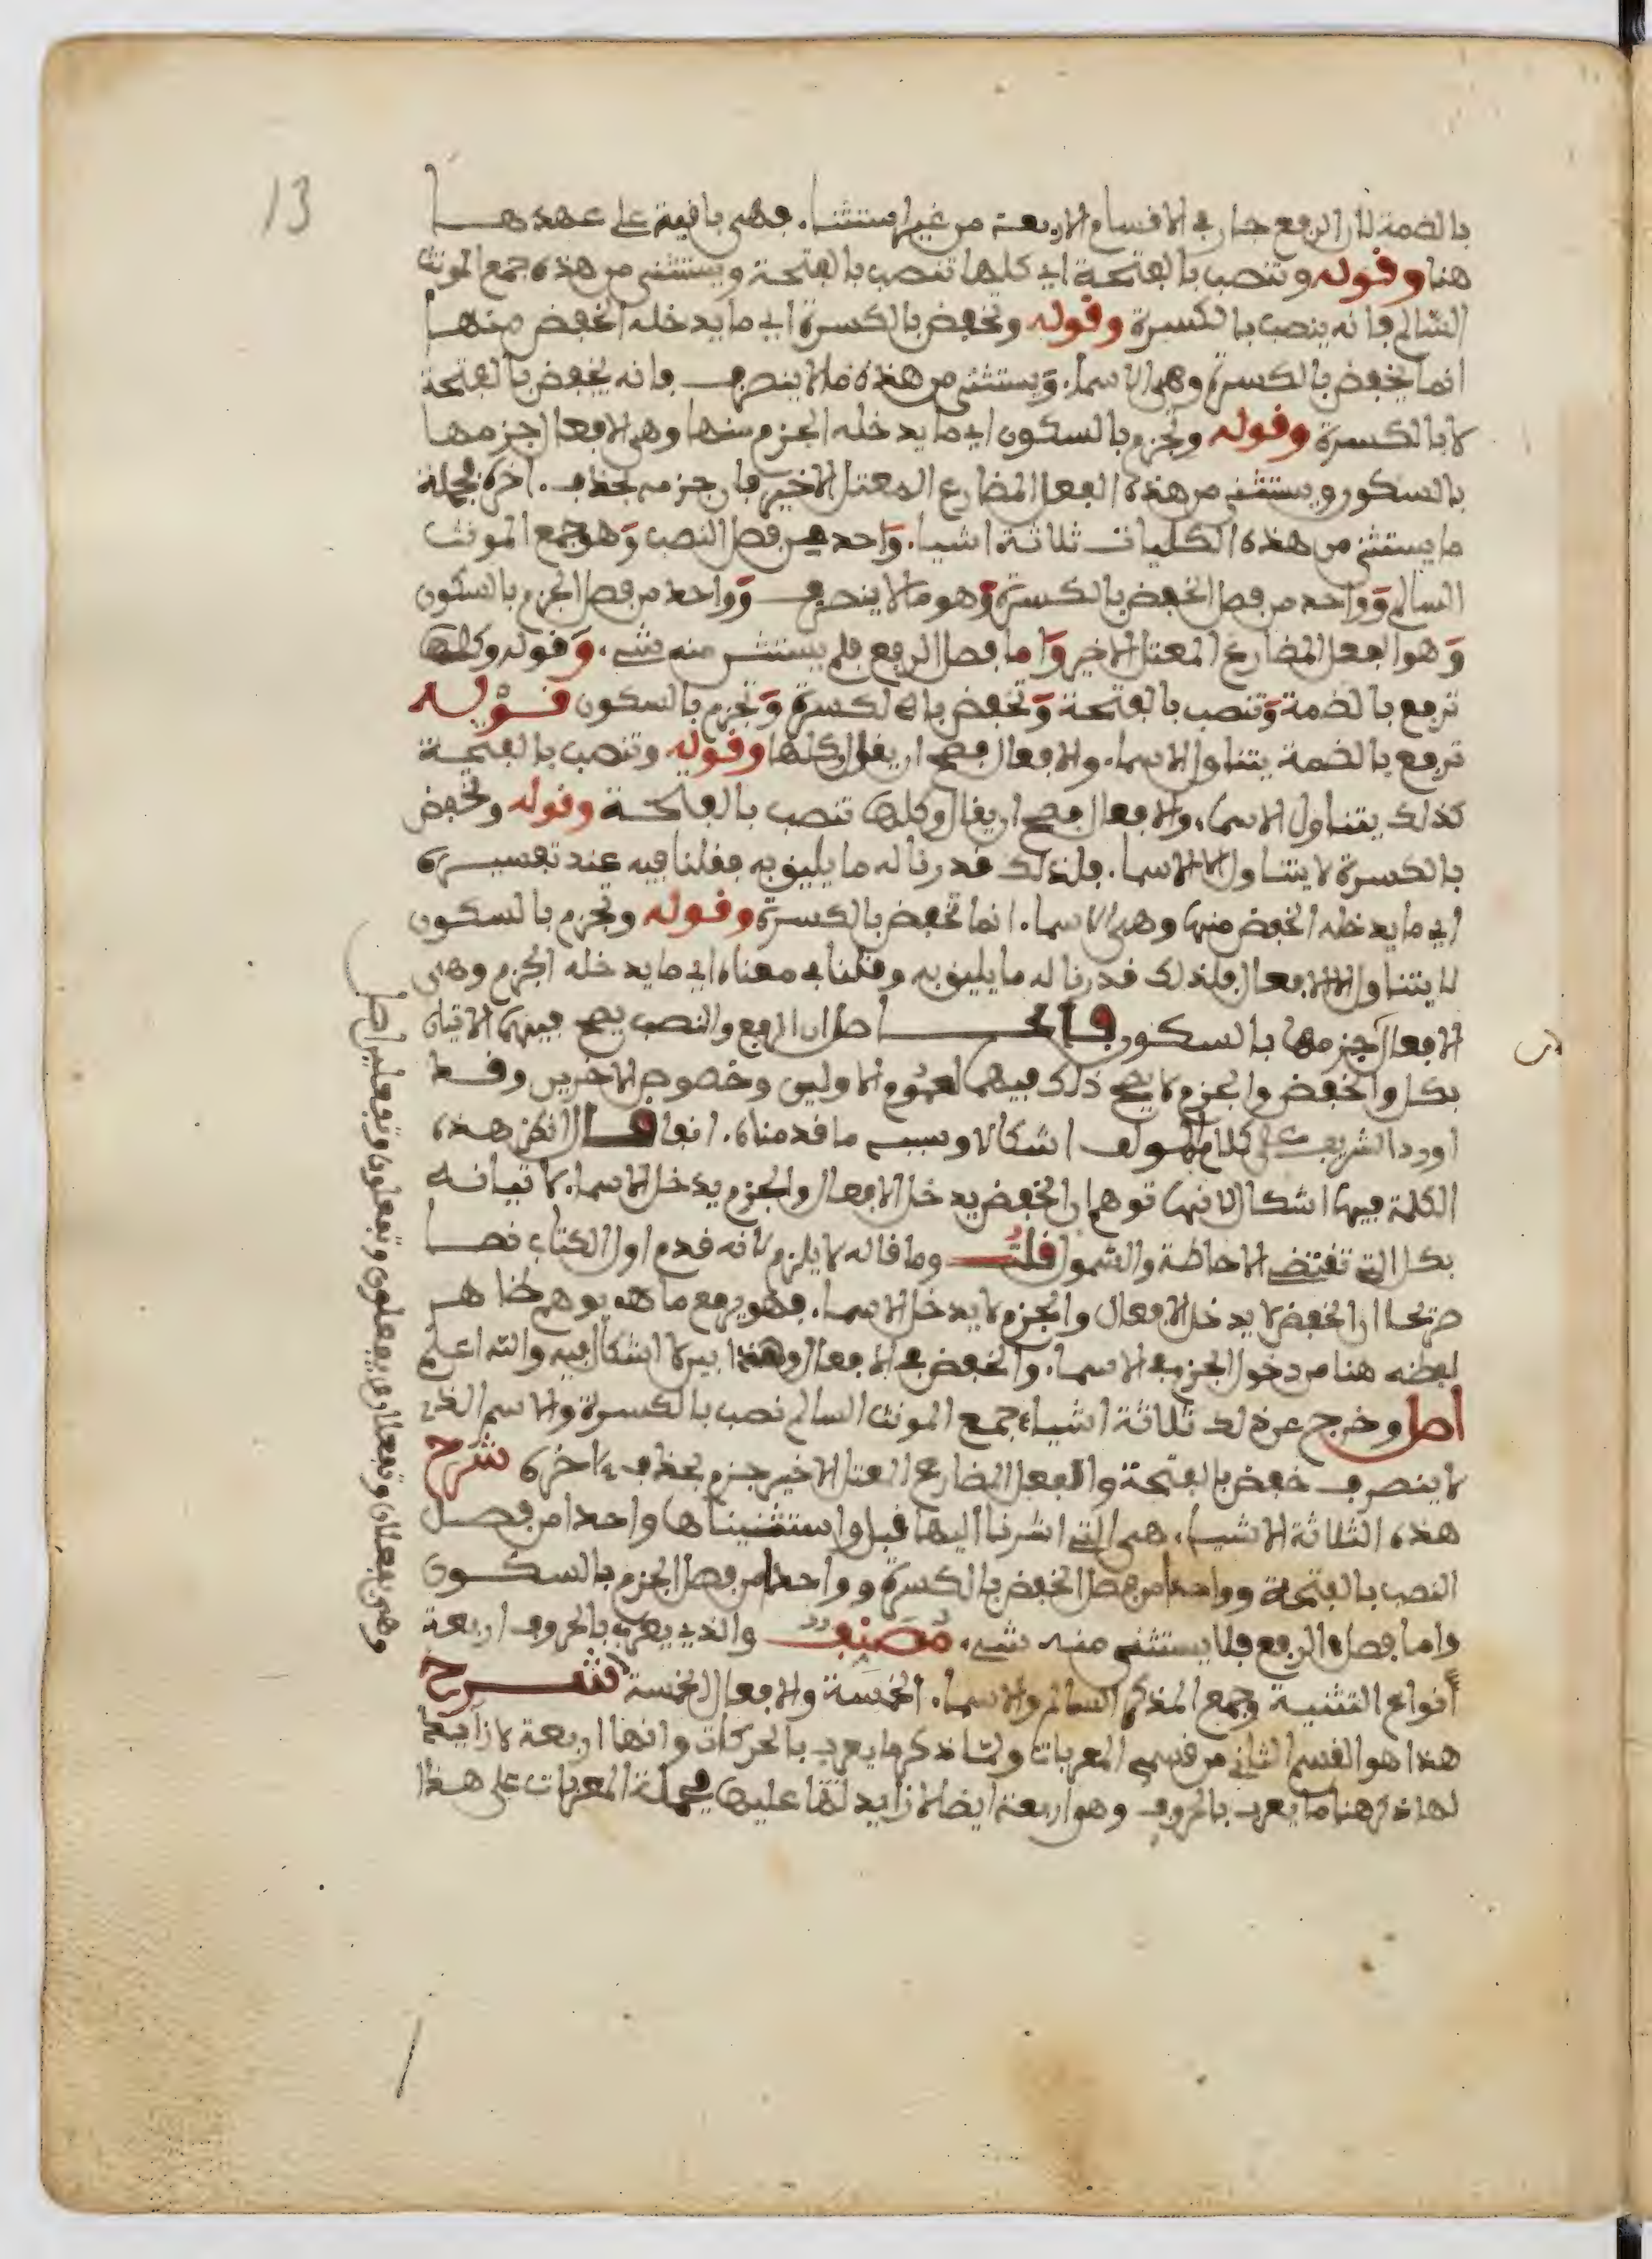 13
بالضمة لان الرفع جار في الاقسام الاربعة من غير استثنا. فهي باقية على عهدها
هنا وقوله وتنصب بالفتحة اي كلها تنصب بالفتحة ويستثنى من هذه جمع المونث
السالم فانه ينصب بالكسرة وقوله وتخفض بالكسرة اي ما يدخله الخفض منها
انما يخفض بالكسرة وهي الاسما. ويستثنى من هذه ما لا ينصرف فانه يخفض بالفتحة
لا بالكسرة وقوله وتجزم بالسكون اي ما يدخله الجزم منها وهي الافعال جزمها
بالسكون ويستثنى من هذه الفعل المضارع المعتل الاخير فان جزمه بحذف. اخره فجملة
ما يستثنى من هذه الكليات ثلاثة اشيا. واحد من فصل النصب وهو جمع المونث
السالم وواحد من فصل الخفض بالكسرة وهو ما لا ينصرف وواحد من فصل الجزم بالسكون
وهو الفعل المضارع المعتل الاخير واما فصل الرفع فلم يستثن منه شي. وقوله وكلها
ترفع بالضمة وتنصب بالفتحة وتخفض بالكسرة وتجزم بالسكون قوله
ترفع بالضمة يتناول الاسما. والافعال فصح ان يقول كلها وقوله وتنصب بالفتحة
كذلك يتناول الاسما. والافعال فصح ان يقال وكلها تنصب بالفتحة وقوله وتخفض
بالكسرة لا يتناول الا الاسما. فلذلك قدرنا له ما يليق به فقلنا فيه عند تفسيره
اي ما يدخله الخفض منها وهي الاسما. انما تخفض بالكسرة وقوله وتجزم بالسكون
لا يتناول الا الافعال فلذلك قدرنا له ما يليق به وقلنا في معناه اي ما يدخله الجزم وهي
الافعال جزمها بالسكون فالحاصل ان الرفع والنصب يصح فيهما الاتيان
بكل والخفض والجزم لا يصح ذلك فيهما لعموم الاولين وخصوص الاخرين وقد
اورد الشريف على كلام المولف اشكالا وسببه ما قدمناه. انفا قال لكن هذه
الكلمة فيها اشكال لانها توهم ان الخفض يدخل الافعال والجزم يدخل الاسما. لاتيانه
بكل التي تقتضي الاحاطة والشمول قلت وما قاله لا يلزم لانه قدم اول الكتاب نصا
صريحا ان الخفض لا يدخل الافعال والجزم لا يدخل الاسما. فهو يرفع ما يوهم ظاهر
لفظه هنا من دخول الجزم في الاسما. والخفض في الافعال وهذا بين لا اشكال فيه والله اعلم
اصل وخرج عن ذلك ثلاثة اشياء جمع المونث السالم نصب بالكسرة والاسم الذي
لا ينصرف خفض بالفتحة والفعل المضارع المعتل الاخير جزم بحذف اخره شرح
هذه الثلاثة الاشيا. هي التي اشرنا اليها قبل واستثنيناها واحدا من فصل
النصب بالفتحة وواحدا من فصل الخفض بالكسرة وواحدا من فصل الجزم بالسكون
واما فصل الرفع فلا يستثنى منه شي. مصنف والذي يعرب بالحروف اربعة
أنواع التثنية وجمع المذكر السالم والاسما. الخمسة والافعال الخمسة شرح
هذا هو القسم الثاني من قسمي المعربات ولما ذكر ما يعرب بالحركات وانها اربعة لا زايد
لها ذكر هنا ما يعرب بالحروف وهو اربعة ايضا لا زايد لها عليها فجملة المعربات على هذا
وهي يفعلان وتفعلان ويفعلون وتفعلون وتفعلين